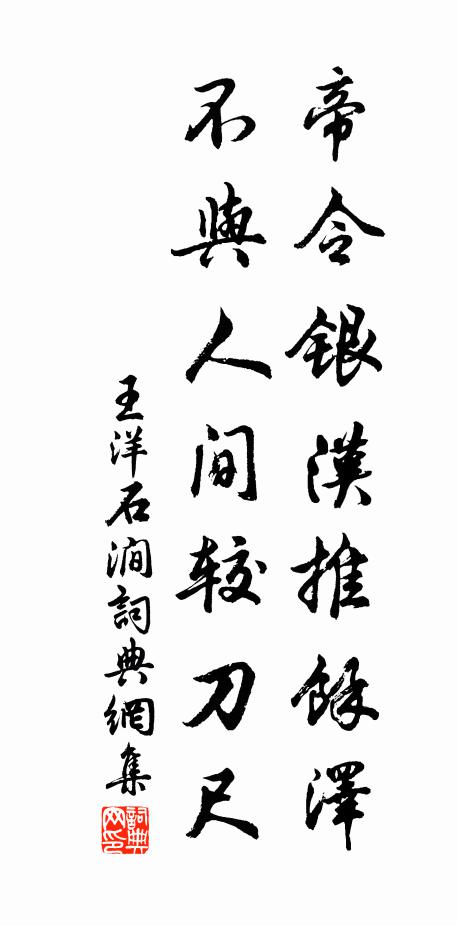 帝令銀漢推餘澤
不與人間較刀尺
王洋石澗詞典網集
詞典网印